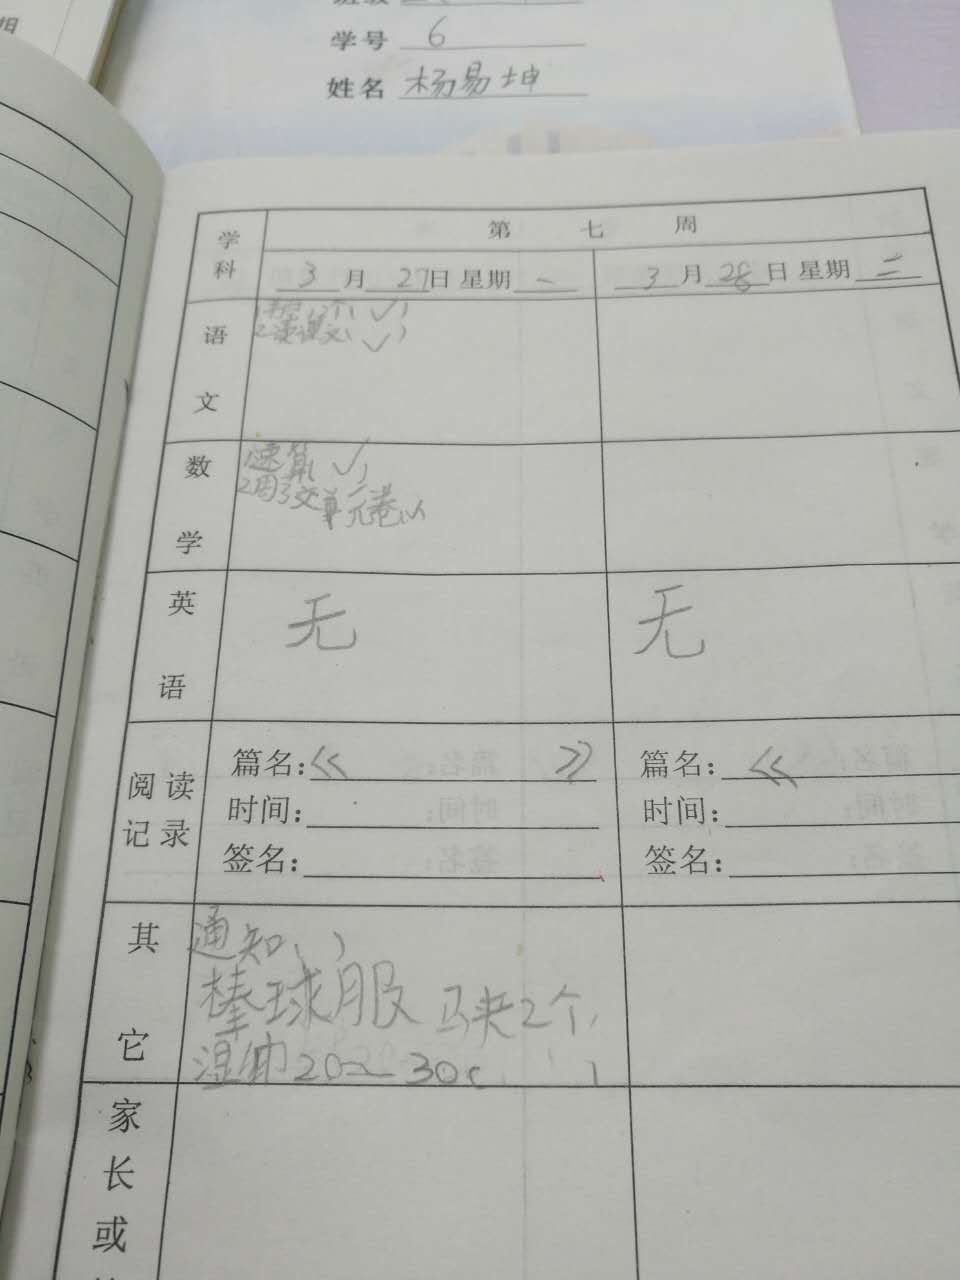 学号 6
姓名 杨易坤
学科
第 七 周
3月27日 星期一
3月28日 星期二
语文
2读课文( ✓ )
数学
1速算( ✓ )
2周3交单元卷
英语
无
无
阅读记录
篇名:《 》
时间:
签名:
篇名:《
时间:
签名:
其它
通知( )
棒球服 马夹2个
湿纸巾 20 30
家长或